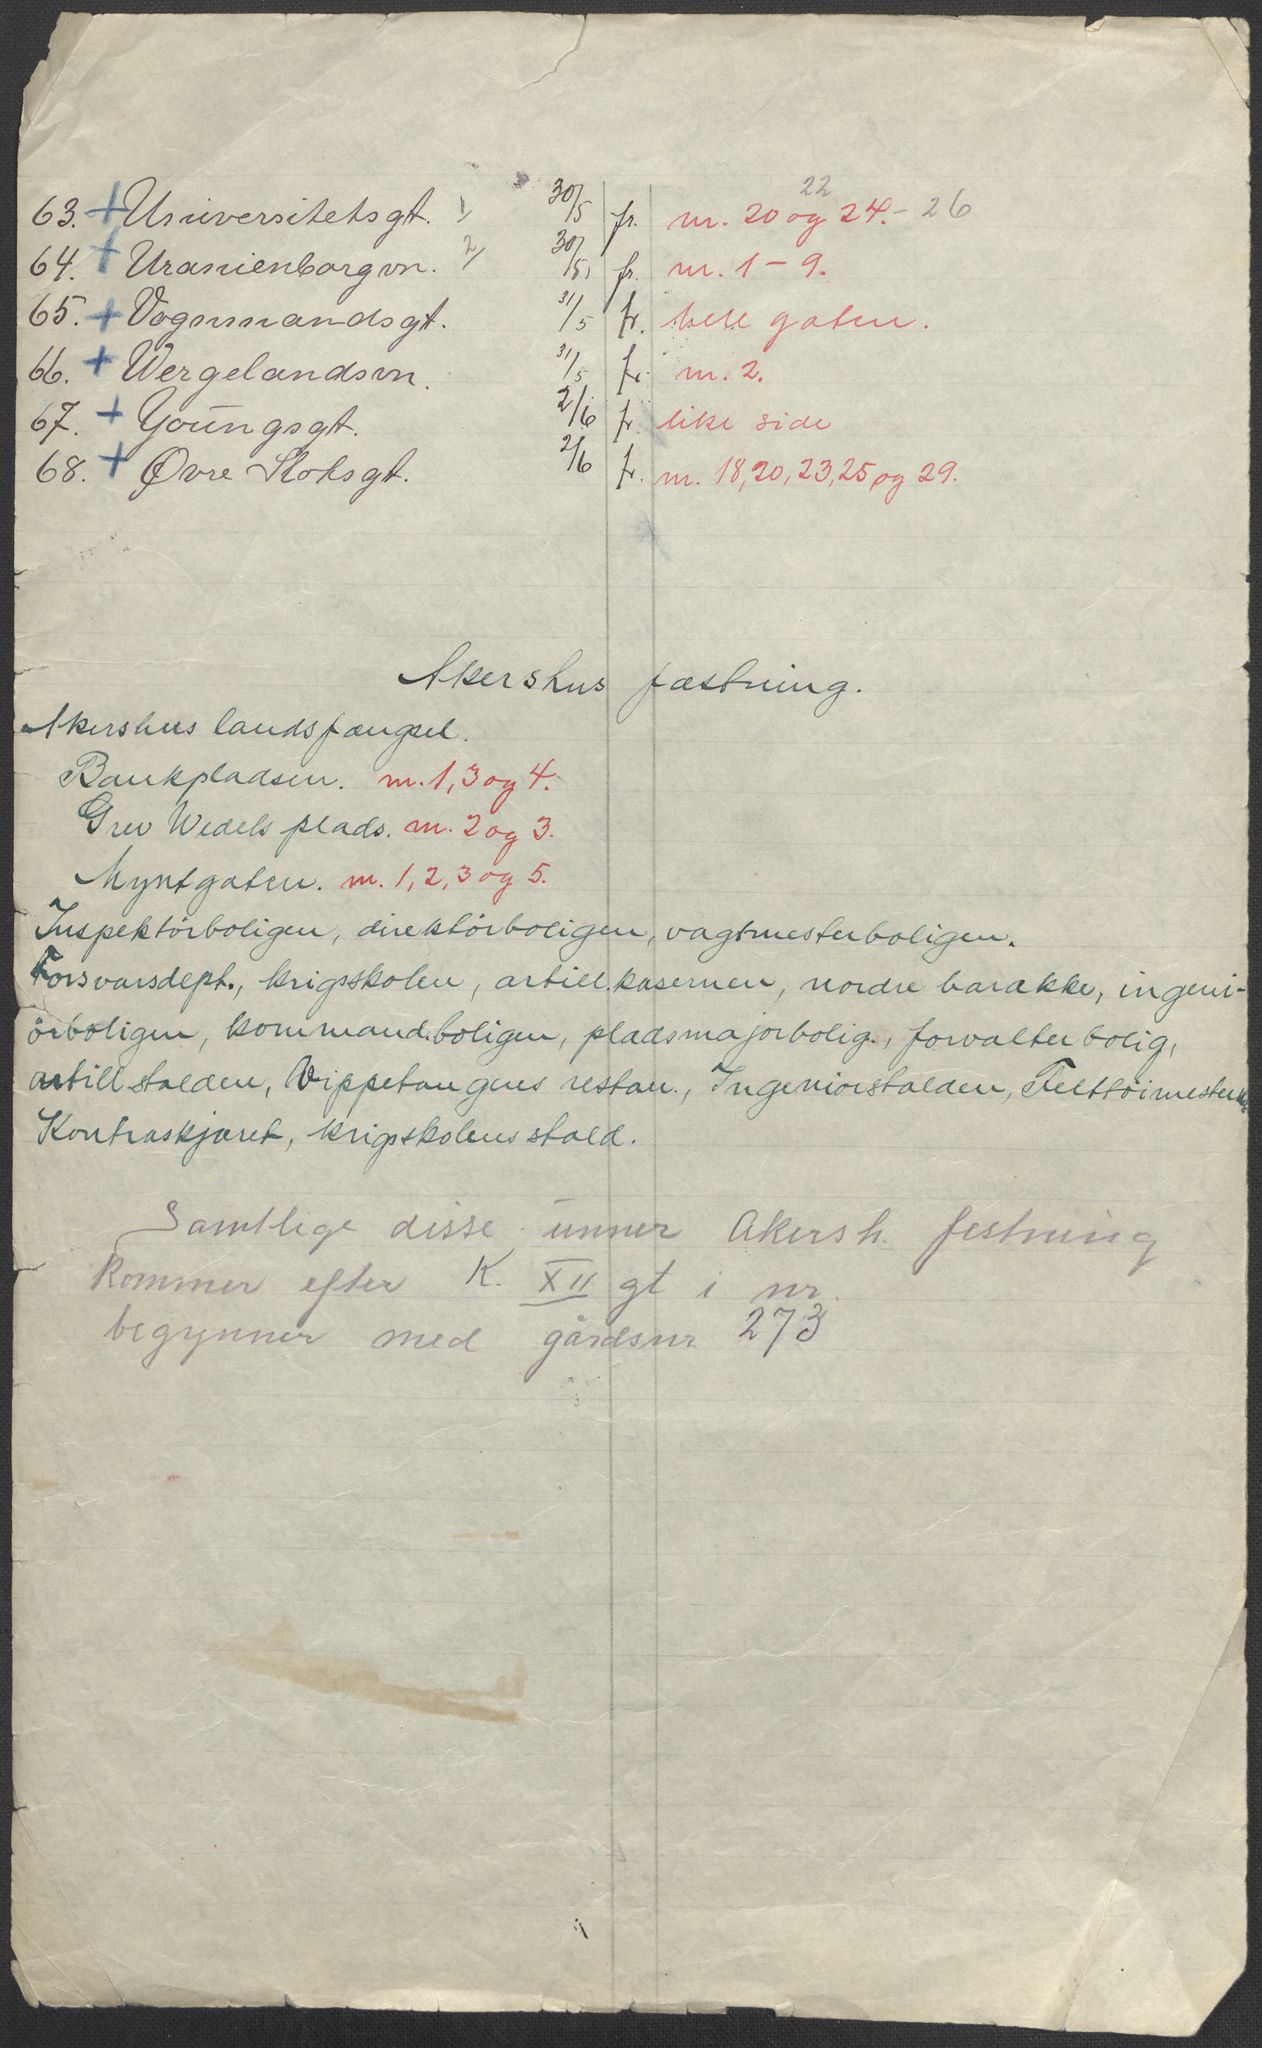 22
63. + Universitetsgt. 1/ 30/5 fr. nr. 20 og 24. - 26
64. + Uranienborgvn. 2/ 30/5 fr. nr. 1 - 9.
65. + Vognmandsgt. 31/5 fr. hele gaten.
66. + Wergelandsvn. 31/5 fr. nr. 2.
67. + Youngsgt. 2/6 fr. like side
68. + Øvre Slotsgt. 2/6 fr. nr. 18, 20, 23, 25 og 29.
Akershus fæstning.
Akershus landsfængsel.
Bankpladsen. nr. 1, 3 og 4.
Grev Wedels plads. nr. 2 og 3.
Myntgaten. nr. 1, 2, 3 og 5.
Inspektörboligen, direktörboligen, vagtmesterboligen.
Forsvarsdept., krigsskolen, artill.kasernen, nordre barakke, ingeni-
örboligen, kommand.boligen, pladsmajorbolig., forvalterbolig,
artillstalden, Vippetangens restau., Ingeniörstalden, Felttöimester
Kontraskjæret, krigsskolens stald.
Samtlige disse unner Akersh. festning
kommer efter K. XII gt i nr.
begynner med gårdsnr 273